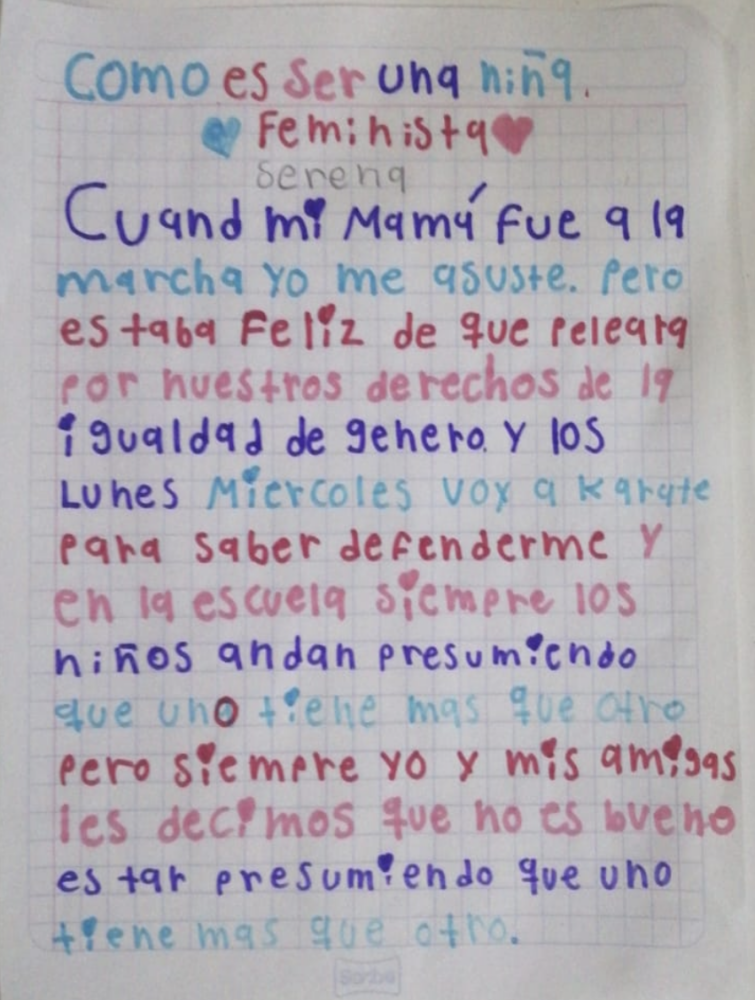 Como es ser una niña.
Feminista
serena
Cuand mi Mamá fue a la
marcha yo me asuste. Pero
estaba Feliz de que peleara
por nuestros derechos de la
igualdad de genero. Y los
Lunes Miercoles voy a karate
para saber defenderme y
en la escuela siempre los
niños andan presumiendo
que uno tiene mas que otro
pero siempre yo y mis amigas
les decimos que no es bueno
estar presumiendo que uno
tiene mas que otro.
Scribe